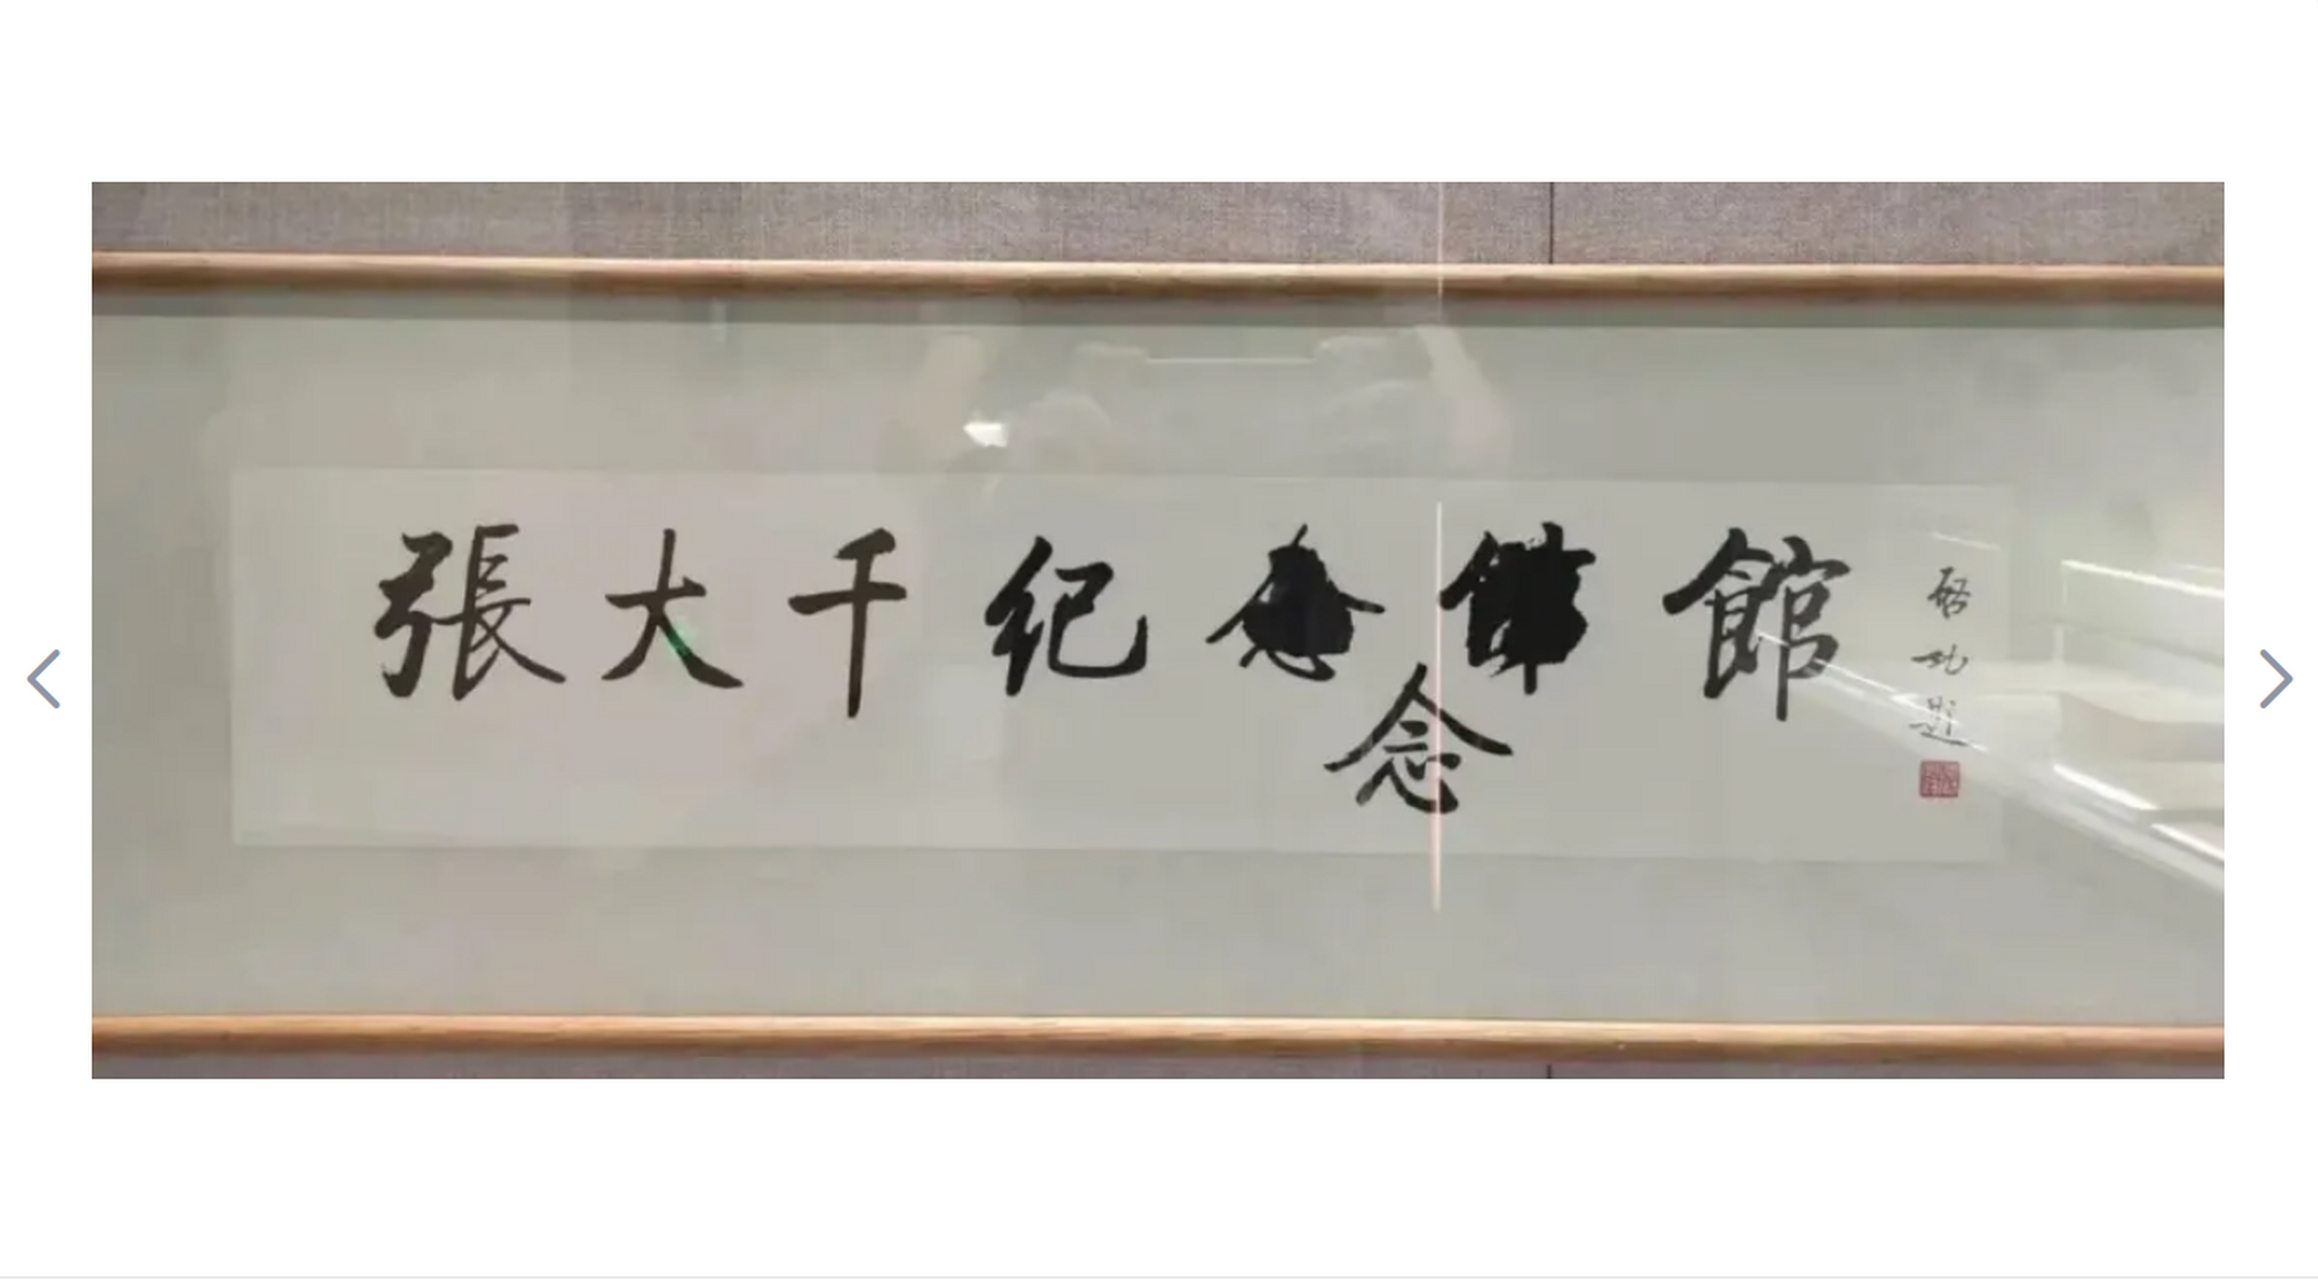 張大千纪館
念
啓功题